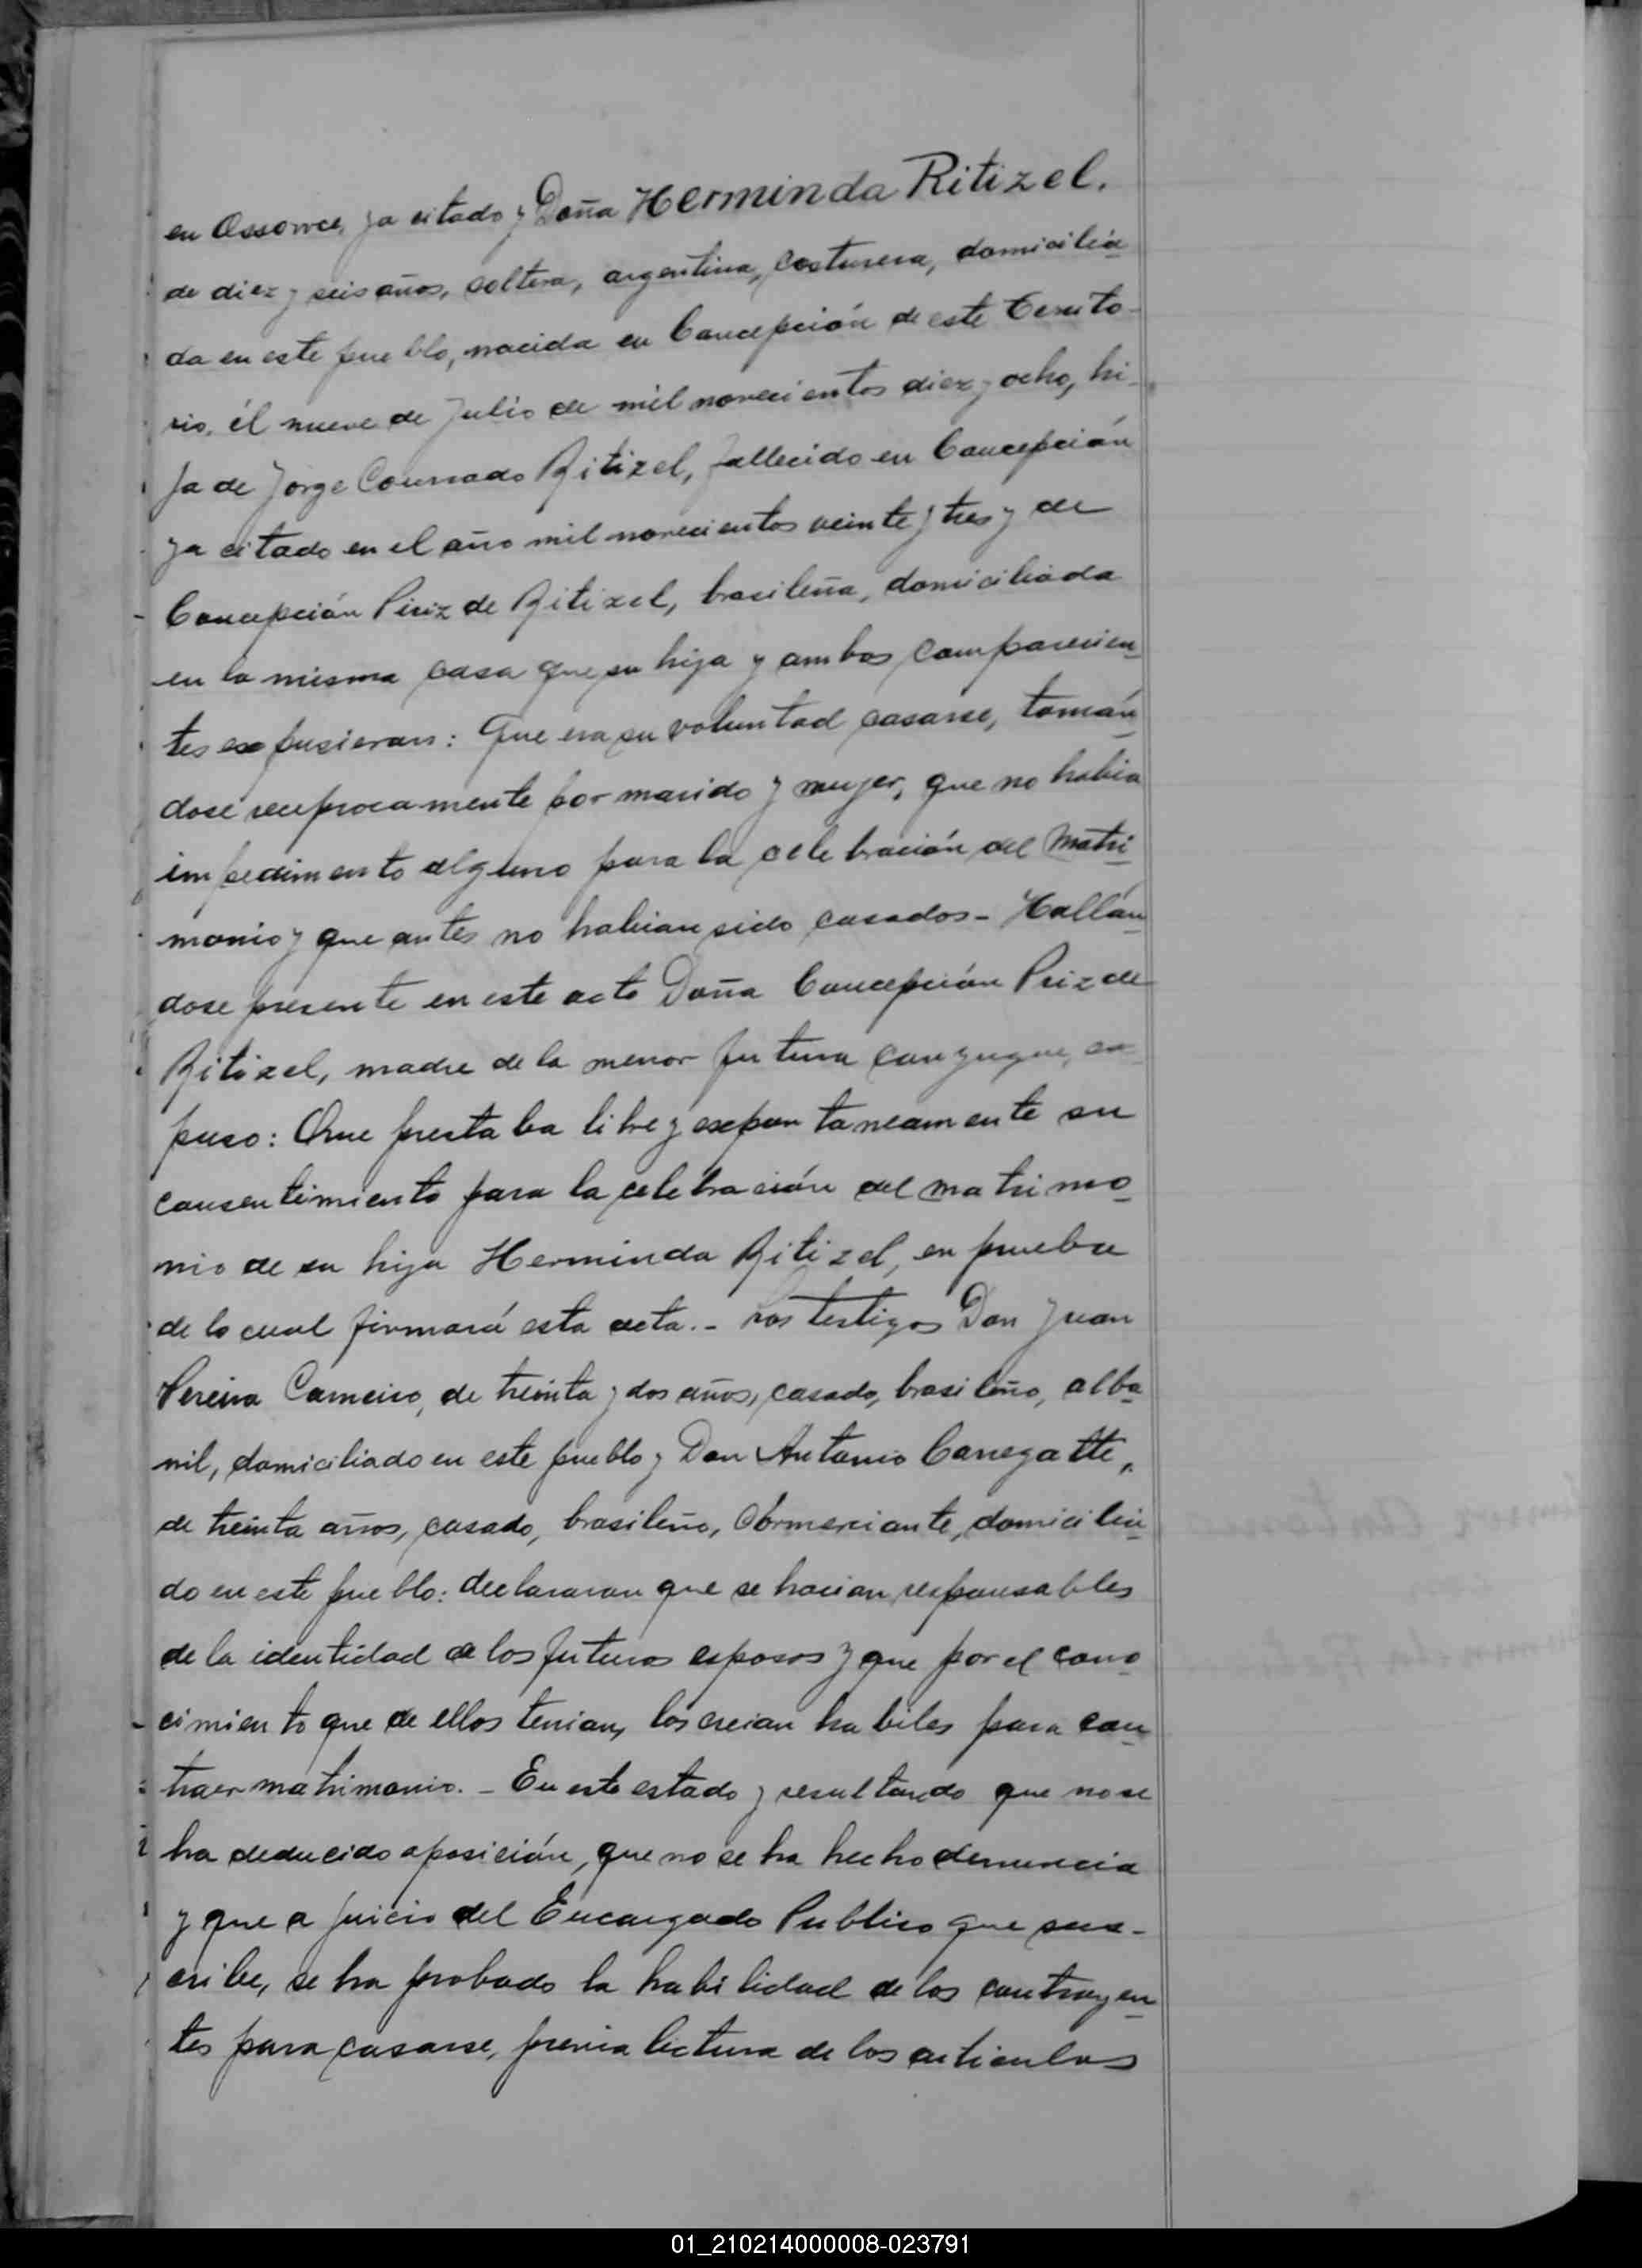 en Ossorice, ya citado y Doña Herminda Ritizel.
de diez y seis años, soltera, argentina, costurera, domicilia
da en este pueblo, nacida en Concepción de este Territo-
rio, él nueve de Julio de mil novecientos diez y ocho, hi-
ja de Jorge Counrado Ritizel, fallecido en Concepción
ya citado en el año mil novecientos veinte y tres y de
Concepción Piriz de Ritizel, brasileña, domiciliada
en la misma casa que su hija y ambos comparecien
tes expusieron: Que era su voluntad casarse, tomán
dose reciprocamente por marido y mujer, que no habia
impedimento alguno para la celebración del Matri
monio y que antes no habian sido casados - Hallán
dose presente en este acto Doña Concepción Priz de
Ritizel, madre de la menor futura conyugue, ex
puso: Que prestaba libre y expontaneamente su
consentimiento para la celebración del matrimo
nio de su hija Herminda Ritizel, en prueba
de lo cual firmará esta acta.- Los testigos Don Juan
Pereira Carneiro, de treinta y dos años, casado, brasileño, alba
nil, domiciliado en este pueblo y Don Antonio Canegatte,
de treinta años, casado, brasileño, Comerciante, domicilia
do en este pueblo: declararon que se hacian responsables
de la identidad de los futuros esposos y que por el cono
cimiento que de ellos tenian, los creian habiles para con
traer matrimonio. - En este estado y resultando que no se
ha deducido oposición, que no se ha hecho denuncia
y que a juicio del Encargado Publico que sus-
cribe, se ha probado la habilidad de los contrayen
tes para casarse, previa lectura de los articulos
01_210214000008-023791